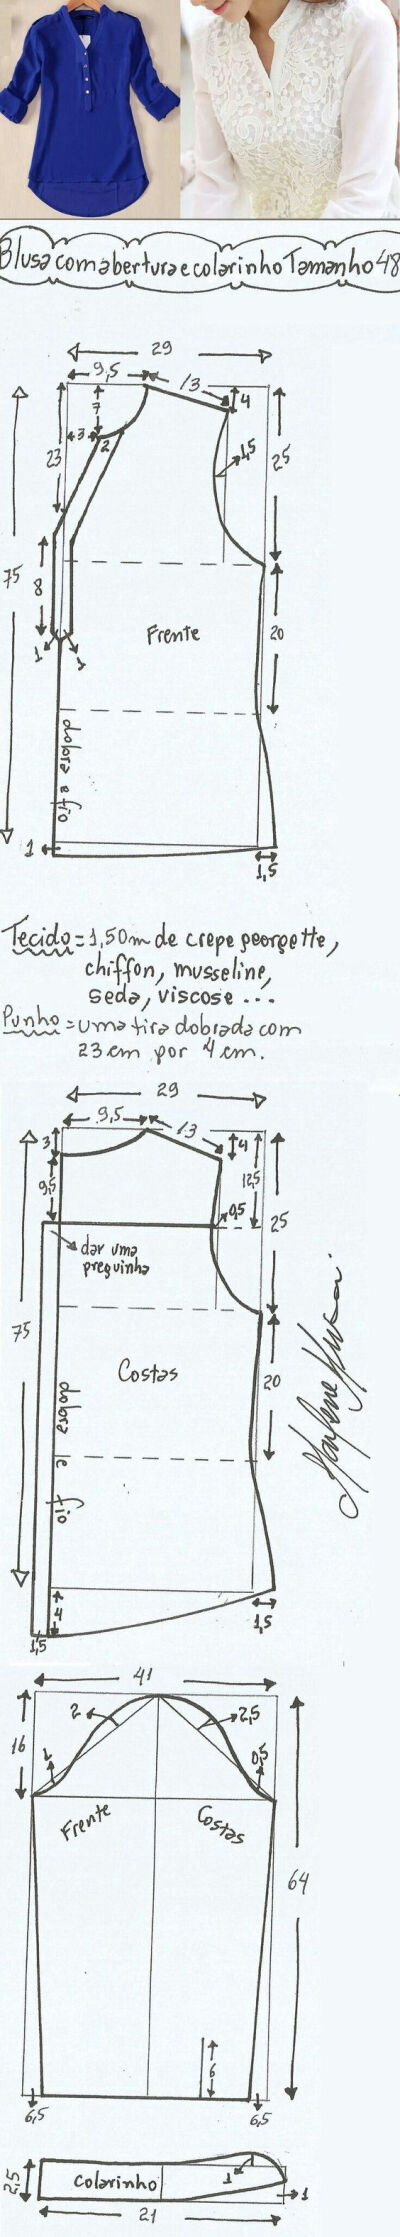 Blusa com abertura e colarinho Tamanho 48
29
9,5
13
4
7
3
2
23
1,5
25
75
8
1
1
Frente
20
dobra e fio
1
1,5
Tecido = 1,50m de crepe georgette,
chiffon, musseline,
seda, viscose ...
Punho = uma tira dobrada com
23 cm por 4 cm.
29
9,5
13
3
4
9,5
12,5
0,5
25
dar uma
preguinha
75
Costas
20
dobra e fio
4
1,5
1,5
41
2
2,5
16
1
0,5
Frente
Costas
64
6
6,5
6,5
2,5
colarinho
1
1
21